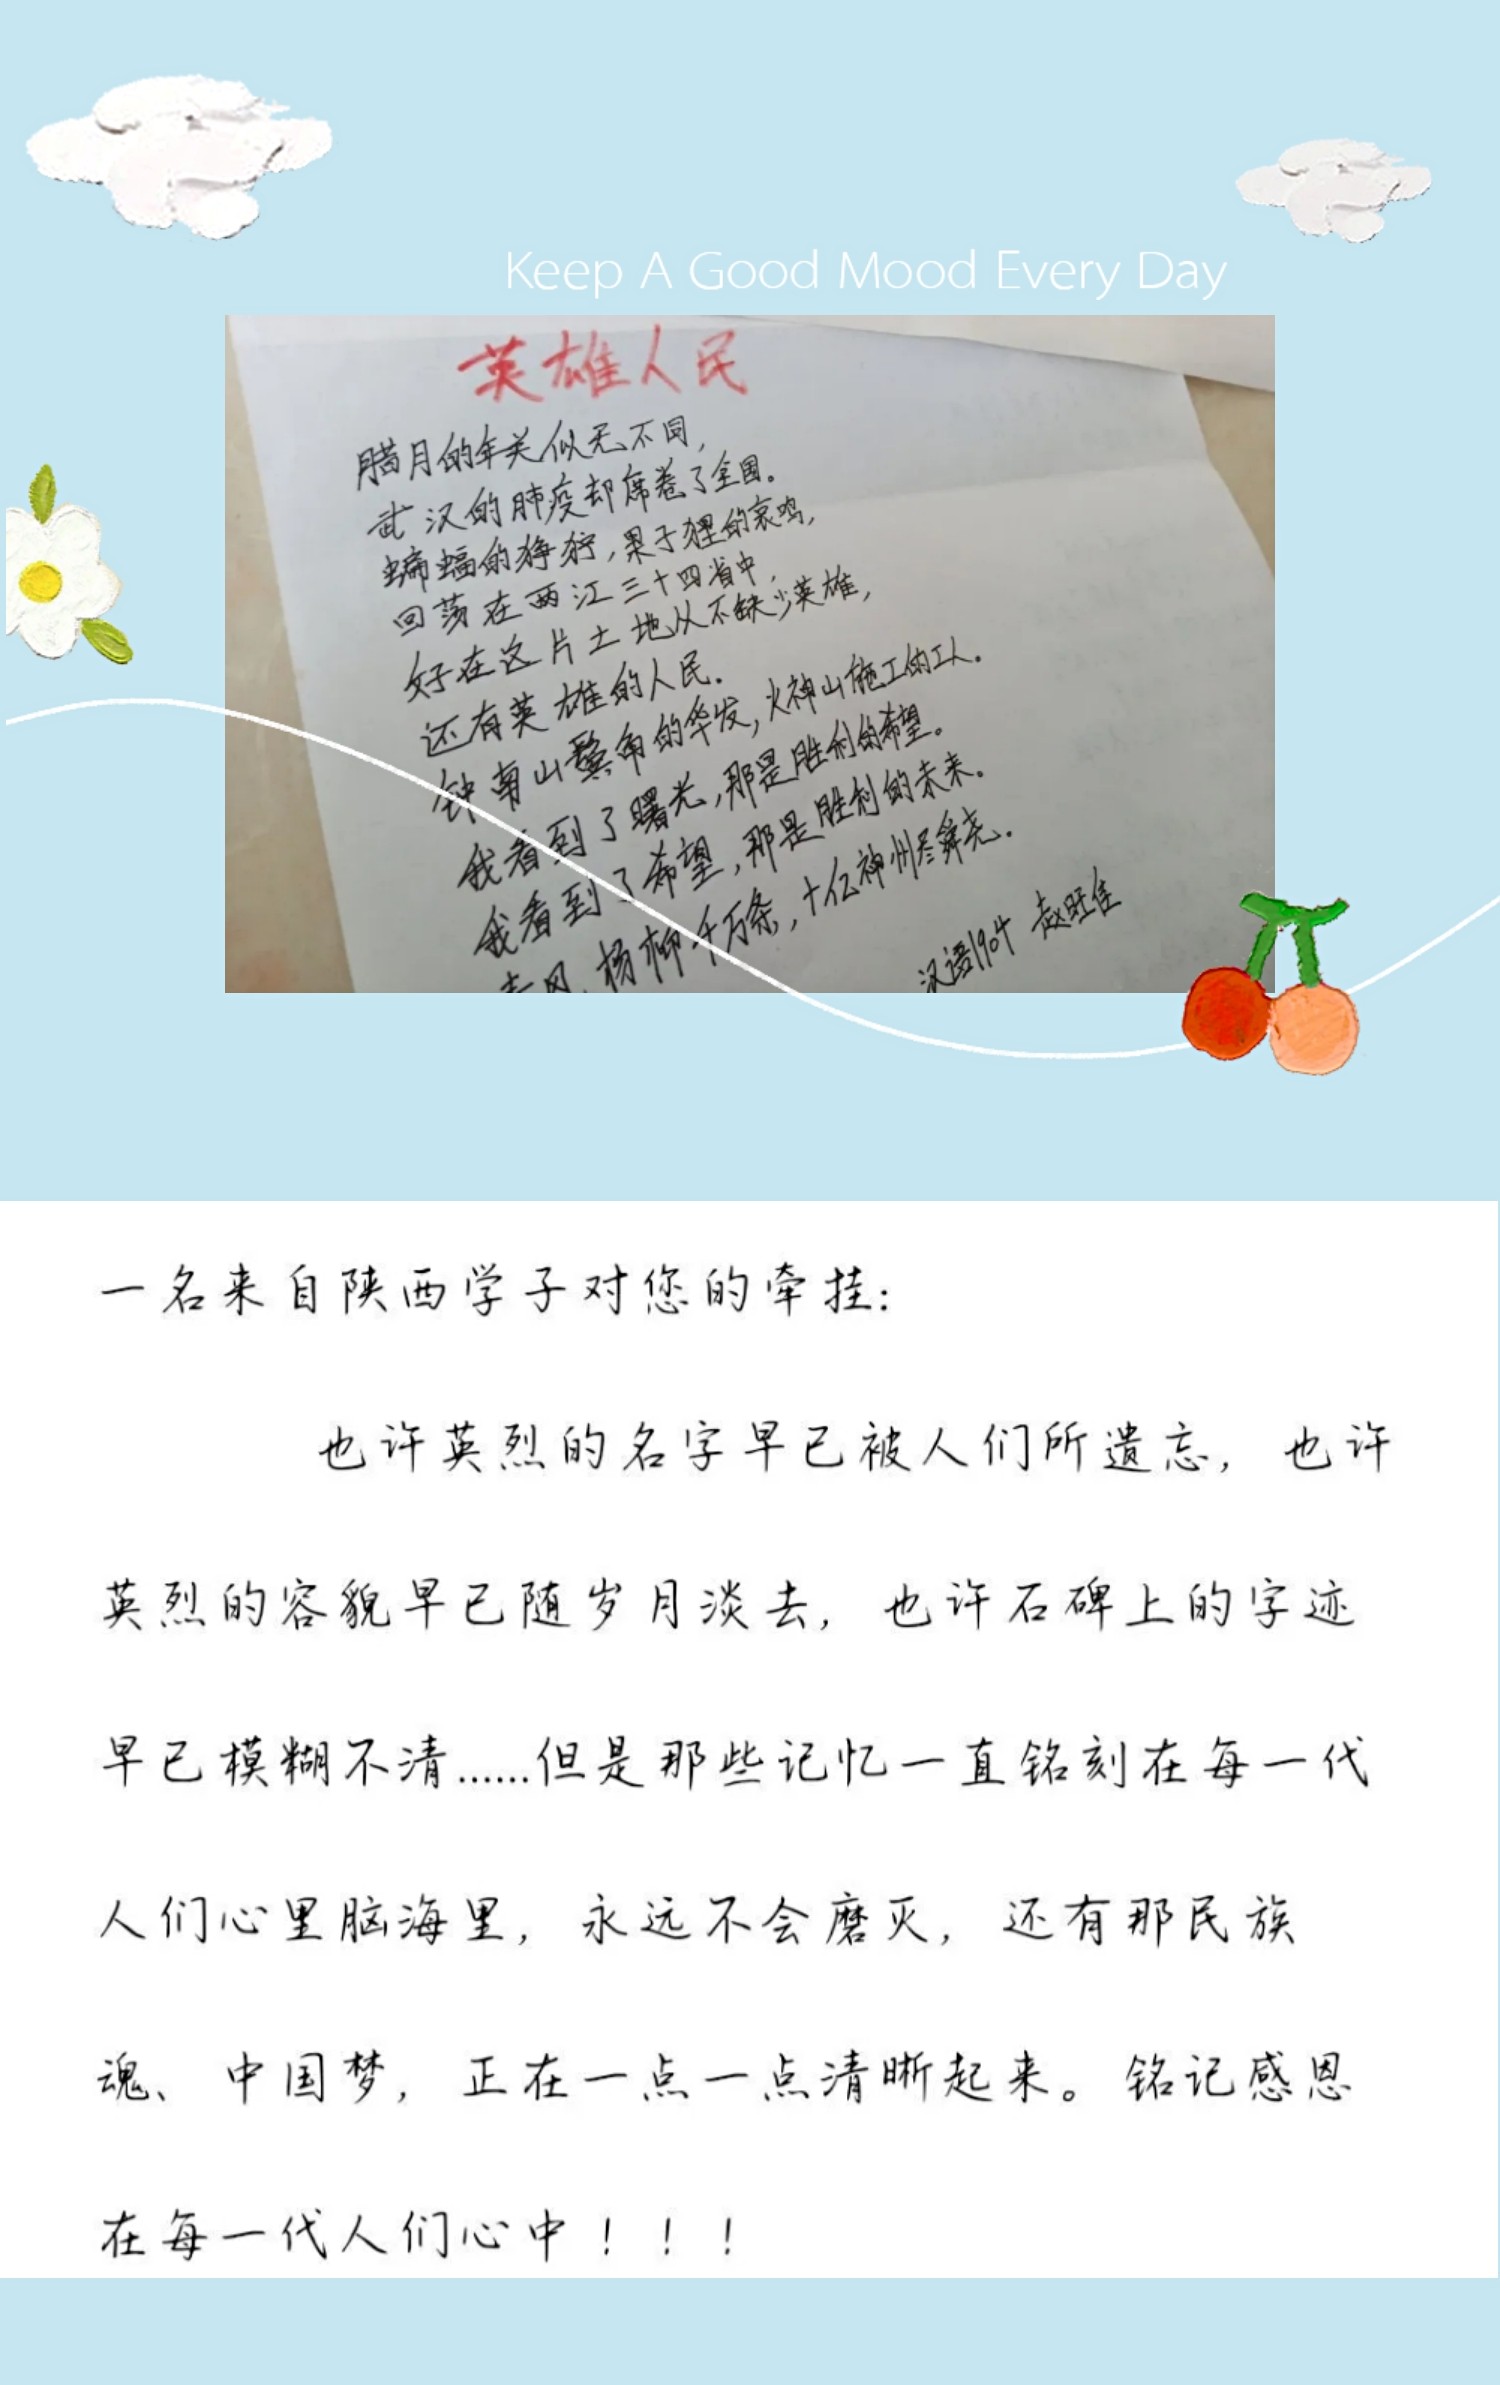 Keep A Good Mood Every Day
英雄人民
腊月的年关似无不同,
武汉的肺疫却席卷了全国。
蝙蝠的狰狞,果子狸的哀鸣,
回荡在两江三十四省中,
好在这片土地从不缺少英雄,
还有英雄的人民.
钟南山鬓角的华发,火神山施工的工人.
我看到了曙光,那是胜利的希望。
我看到了希望,那是胜利的未来。
杨柳千万条,十亿神州尽舜尧.
汉语1904 赵旺佳
一名来自陕西学子对您的牵挂:
也许英烈的名字早已被人们所遗忘,也许
英烈的容貌早已随岁月淡去,也许石碑上的字迹
早已模糊不清……但是那些记忆一直铭刻在每一代
人们心里脑海里,永远不会磨灭,还有那民族
魂、中国梦,正在一点一点清晰起来。铭记感恩
在每一代人们心中!!!